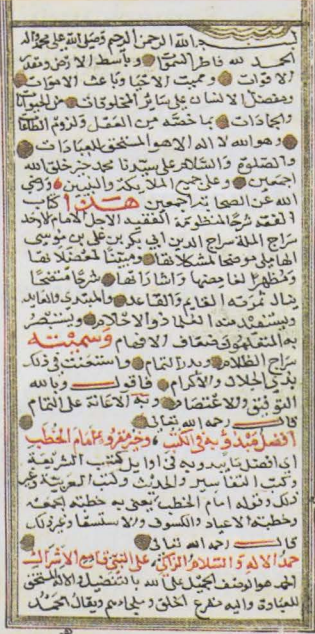 بسم الله الرحمن الرحيم وصلى الله على محمد واله
الحمد لله فاطر السموات وباسط الارض ومقدر
الاقوات ومميت الاحيا وباعث الاموات
ومفضل الانسان على سائر المخلوقات من الحيوانات
والجمادات بما خصه من العقل ولزوم الطاعات
وهو الله لا اله الا هو المستحق للعبادات
والصلوة والسلام على سيدنا محمد خير خلق الله
اجمعين وعلى جميع الملائكة والنبيين ورضي
الله عن الصحابة اجمعين هذا كتاب
الفته شرحا لمنظومة الفقيه الاجل الامام الاوحد
سراج الملة سراج الدين ابي بكر بن علي بن موسى
الهاملي موضحا لمشكلاتها ومبينا لمعضلاتها
ومظهرا لغامضها واشاراتها شرحا مفتحا
ينال ثمرته القايم والقاعد والمبتدي والعابد
ويستفيد منه العلما ذو الاحلام ويستبصر
به المتعلمون ضعاف الافهام وسميته
سراج الظلام وبدر التمام واستعنت في ذلك
بذي الجلال والاكرام فاقول وبالله
التوفيق والاعتصام وبه الاعانة على التمام
قال رحمه الله تعالى
افضل مبدو به في الكتب وخير مفروه امام الخطب
اي افضل ما يبدو به في اوايل كتب الشريعة
وكتب التفاسير والحديث وكتب العربية وغير
ذلك وقوله امام الخطب يعني به خطبة الجمعة
وخطبة الاعياد والكسوف والاستسقا وغير ذلك
قال رحمه الله تعالى
حمد الاله والسلام الزاكي على النبي قامع الاشراك
الحمد هو الوصف الجميل على الله بالتفضيل والاله المستحق
للعبادة واليه مفزع الخلق ويقال الحمد